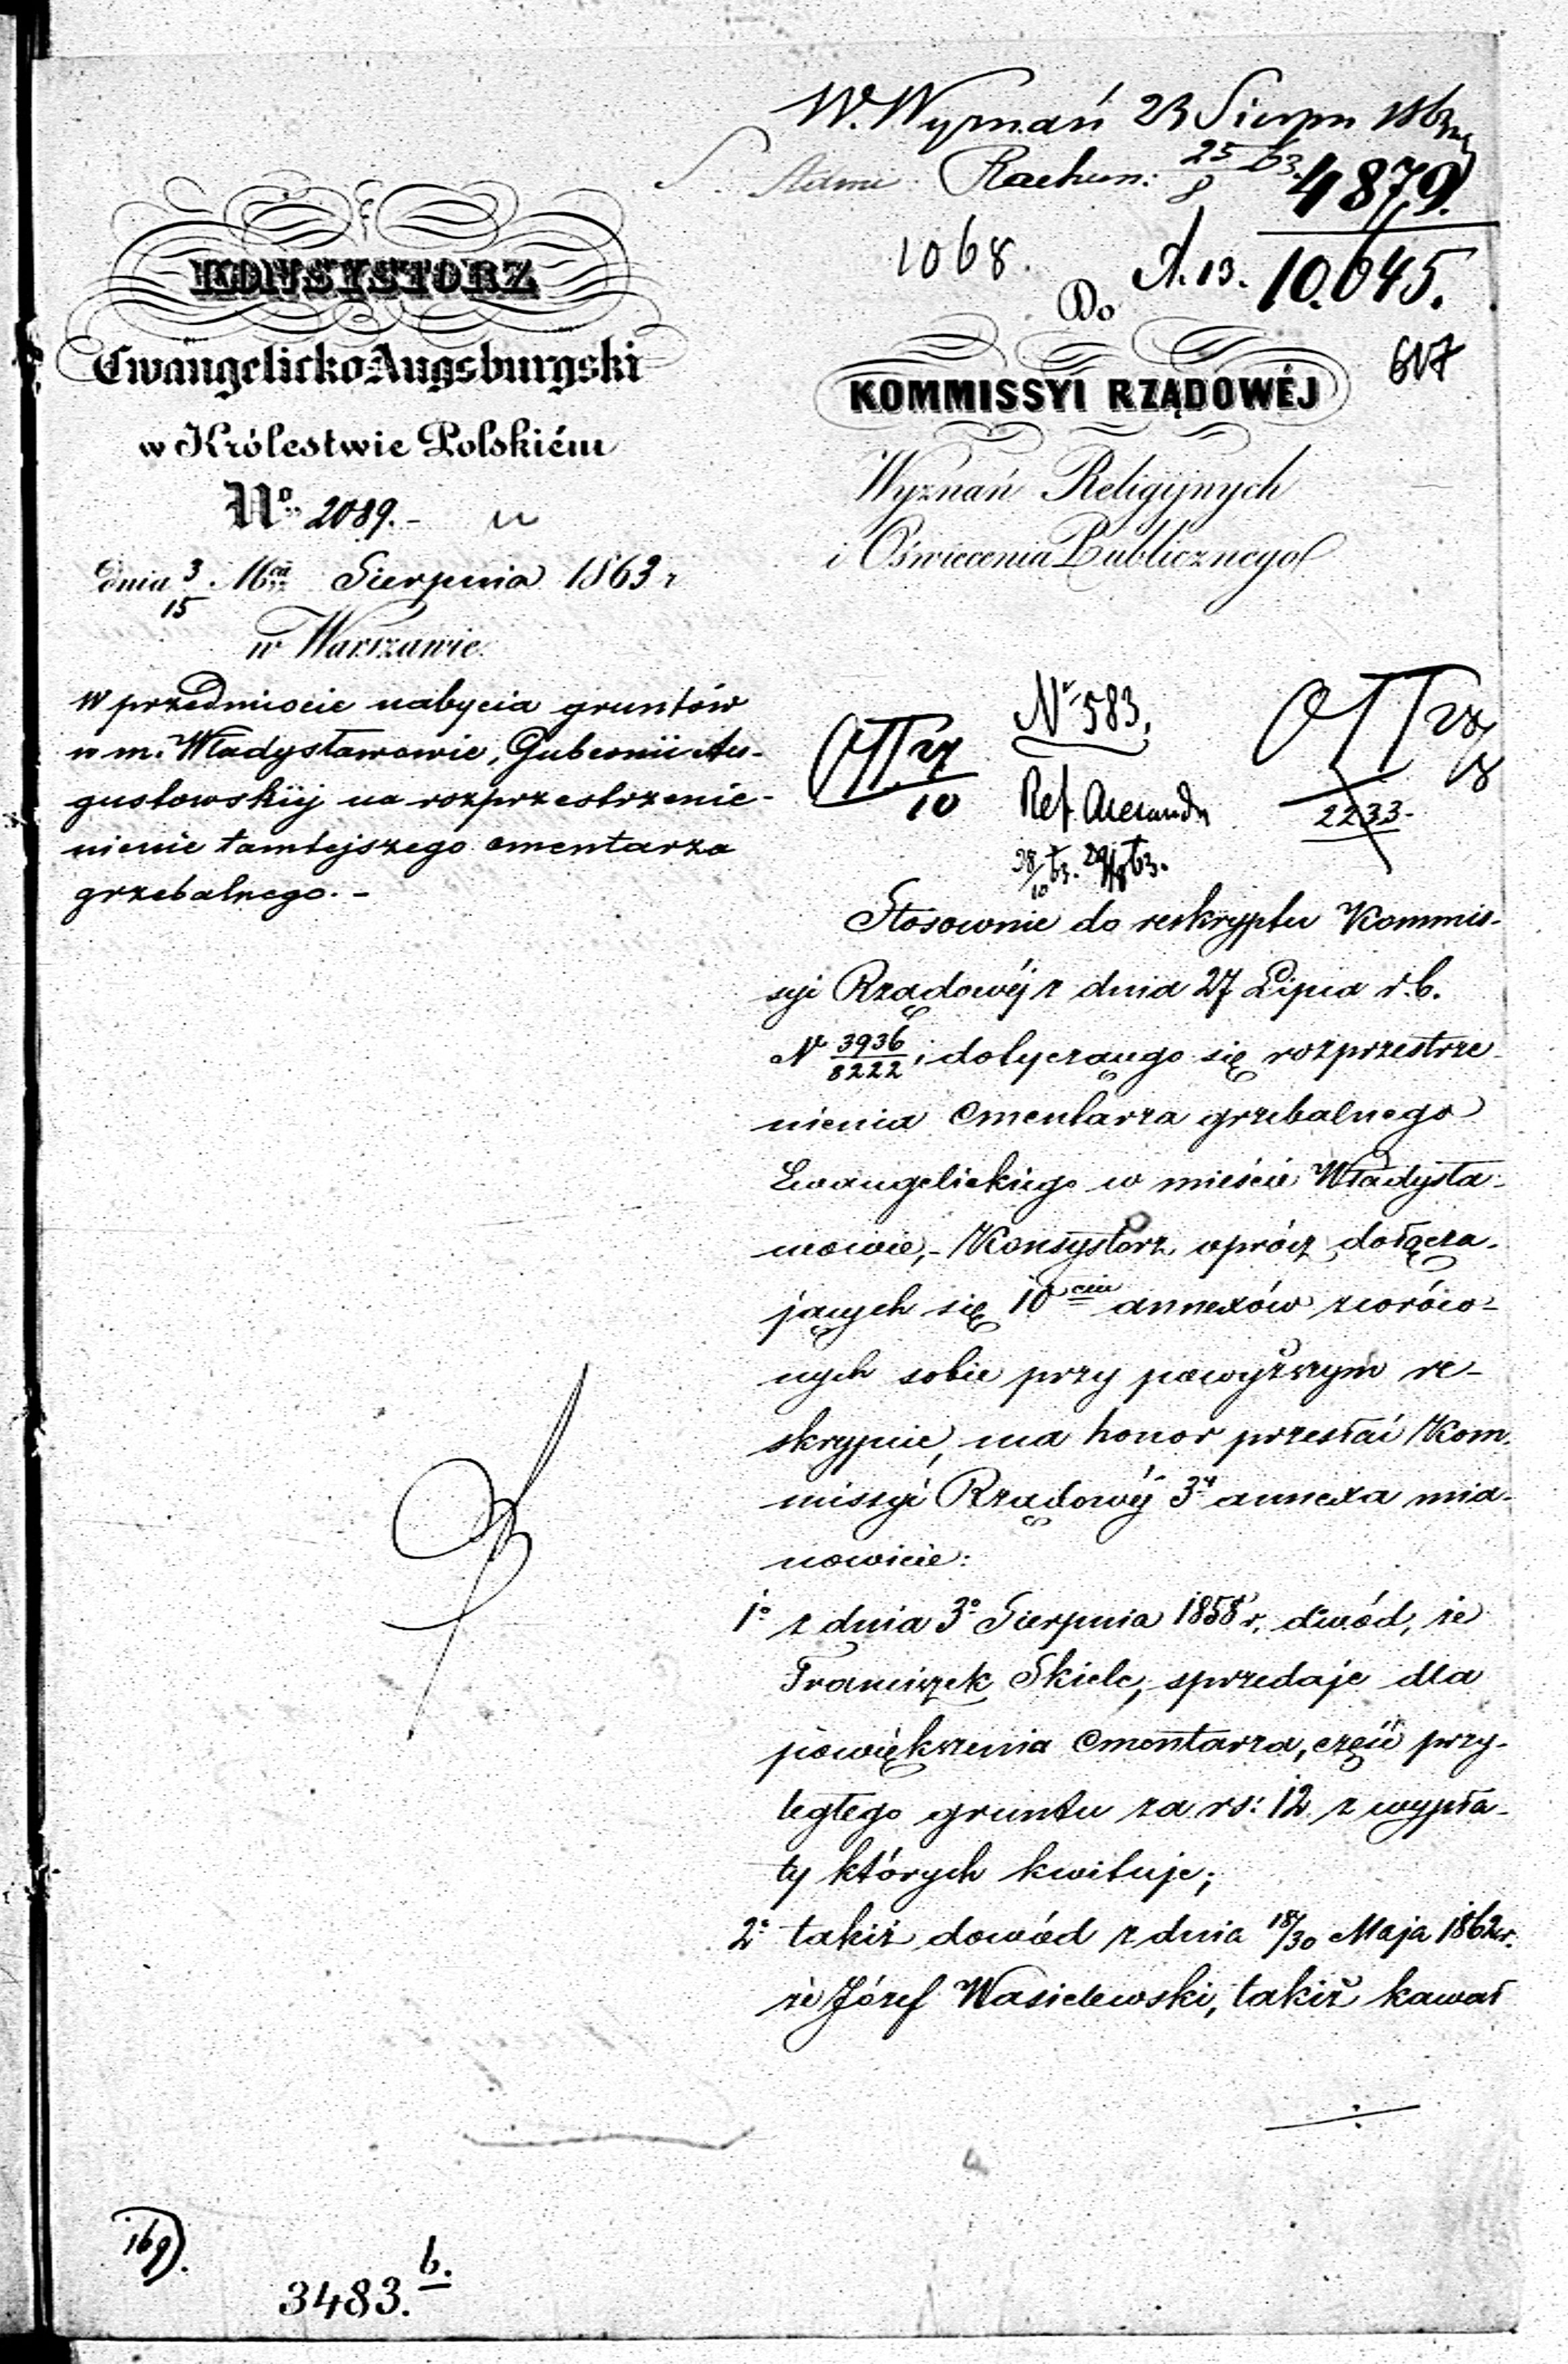 W. Wyznań 23 Sierpn 1863
Rachun: 25/8 63.
4879.
1068.
A.13. 10.645.
617
KONSYSTORZ
Ewangelicko-Augsburgski
w Królestwie Polskiém
No. 2089.-
dnia 3/15 Mca Sierpnia 1863 r
w Warszawie.
W przedmiocie nabycia gruntów
w m. Władysławowie, Gubernii Au-
gustowskiéj na rozprzestrzenie-
nienie tamtejszego cmentarza
grzebalnego.-
Do
KOMMISSYI RZĄDOWÉJ
Wyznań Religijnych
i Oświecenia Publicznego
Nr 583.
10
Ref.
28/10 63.
2233.
Stosownie do reskryptu Kommis-
syi Rządowéj z dnia 27 Lipca r.b.
N 3936/8222, dotyczącego się rozprzestrze-
nienia Cmentarza grzebalnego
Ewangelickiego w mieście Władysła-
wowie,- Konsystorz oprócz dołącza-
jących się 10ciu annexów zwróco-
nych sobie przy powyższym re-
skrypcie, ma honor przesłać Kom-
missyi Rządowéj 3y annexa mia-
nowicie:
1o z dnia 3o Sierpnia 1858 r. dwód, że
Franciszek Skiele, sprzedaje dla
powiększenia Cmentarza, część przy-
ległego gruntu za rs: 12 z wypła-
ty których kwituje;
2o takiż dowód z dnia 18/30 Maja 1862 r.
że Józef Wasielewski, takiż kawał
169).
3483. b.